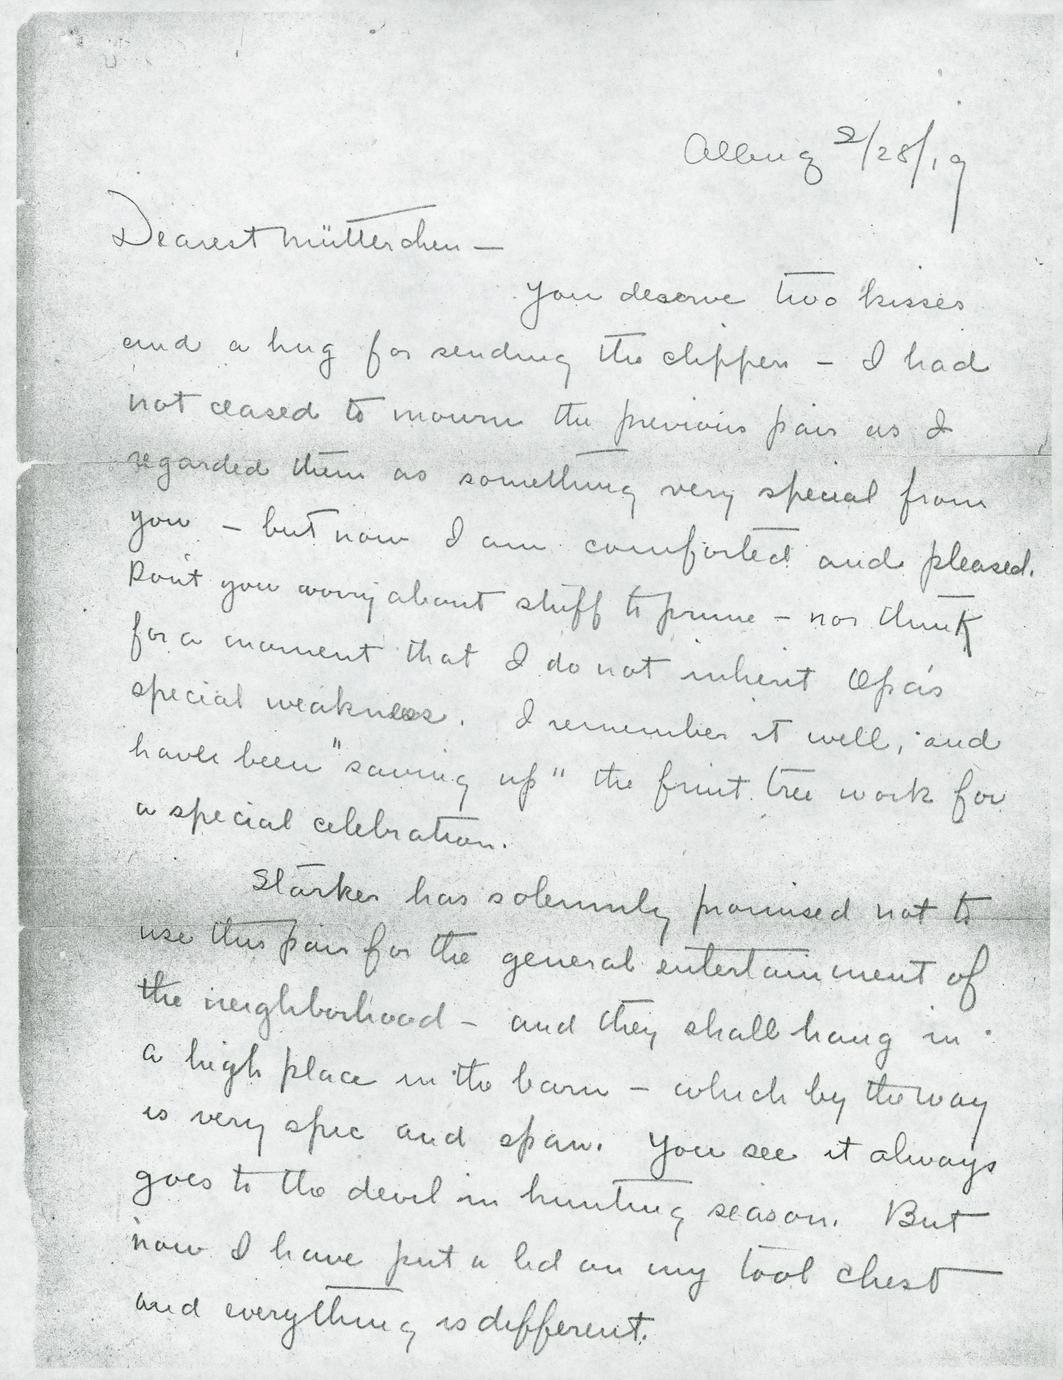 Albuq 2/28/19
Dearest Mütterchen —
You deserve two kisses
and a hug for sending the clippers — I had
not ceased to mourn the previous pair as I
regarded them as something very special from
you — but now I am comforted and pleased.
Don't you worry about stuff to prune — nor think
for a moment that I do not inherit Opa's
special weakness. I remember it well, and
have been "saving up" the fruit tree work for
a special celebration.
Starker has solemnly promised not to
use this pair for the general entertainment of
the neighborhood — and they shall hang in
a high place in the barn — which by the way
is very spic and span. You see it always
goes to the devil in hunting season. But
now I have put a lid on my tool chest
and everything is different.